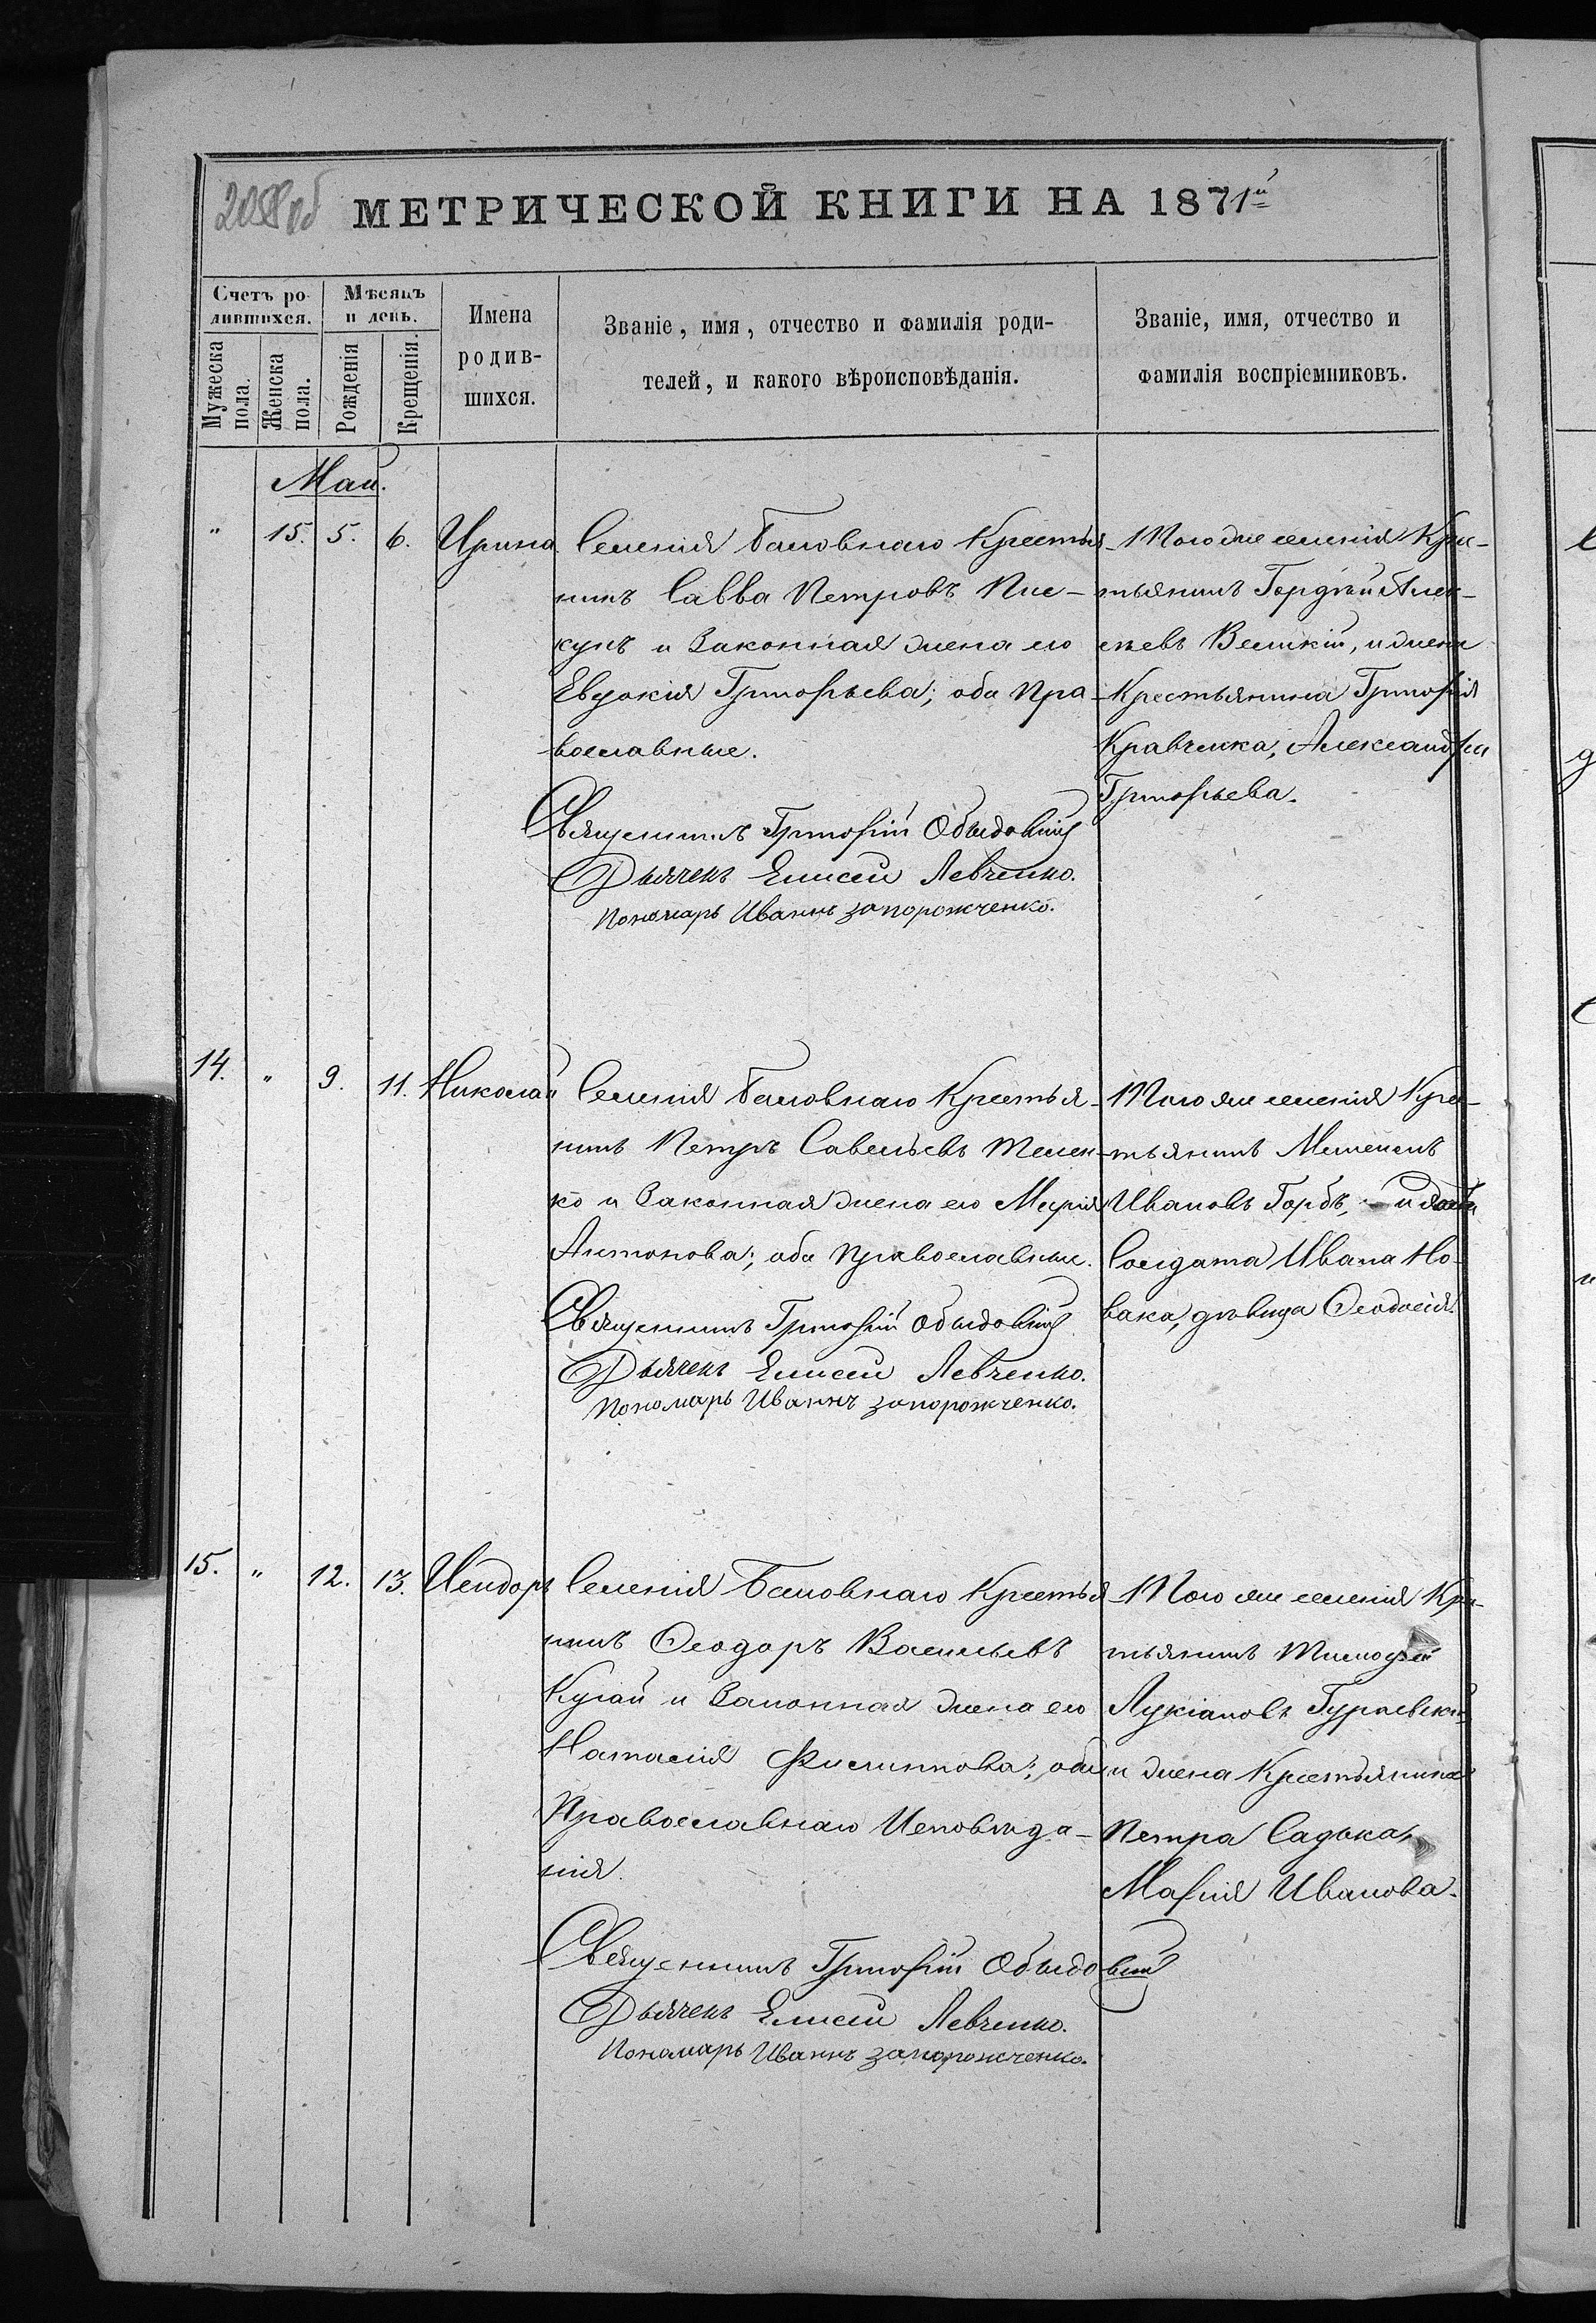 208об
МЕТРИЧЕСКОЙ КНИГИ НА 1871й
Счетъ ро-
дившихся.
Мужеска
пола.
Женска
пола.
Мѣсяцъ
и день.
Рожденія
Крещенія.
Имена
родив-
шихся.
Званіе, имя, отчество и фамилія роди-
телей, и какого вѣроисповѣданія.
Званіе, имя, отчество и
фамилія воспріемниковъ.
Май.
" 15. 5. 6. Ирина
Селенія Баловнаго Крестья-
нинъ Савва Петровъ Пис-
кунъ и Законная жена его
Евдокія Григорьева; оба Пра-
вославные.
Священникъ Григорій Обыдовскій
Дьячекъ Елисей Левченко.
Пономарь Иванъ Запорожченко.
Того же селенія Кре-
стьянинъ Гордѣй Алек-
сѣевъ Великій, и жена
Крестьянина Григорія
Кравченка, Александра
Григорьева.
14. " 9. 11. Николай
Селенія Баловнаго Крестья-
нинъ Петръ Савельевъ Телен-
ко и Законная жена его Марія
Антонова; оба Православные.
Священникъ Григорій Обыдовскій
Дьячекъ Елисей Левченко.
Пономарь Иванъ Запорожченко.
Того же селенія Кре-
стьянинъ
Ивановъ Горбъ, и дочь
Солдата Ивана Но-
вака, дѣвица Феодосія.
15. " 12. 13. Исидоръ
Селенія Баловнаго Крестья-
нинъ Феодоръ Васильевъ
Кугай и Законная жена его
Наталія Филиппова; оба
Православнаго Исповѣда-
нія.
Священникъ Григорій Обыдовскій
Дьячекъ Елисей Левченко.
Пономарь Иванъ Запорожченко.
Того же селенія Кре-
стьянинъ Тимофей
Лукіановъ Гураевскій
и жена Крестьянина
Петра Садька,
Марія Иванова.